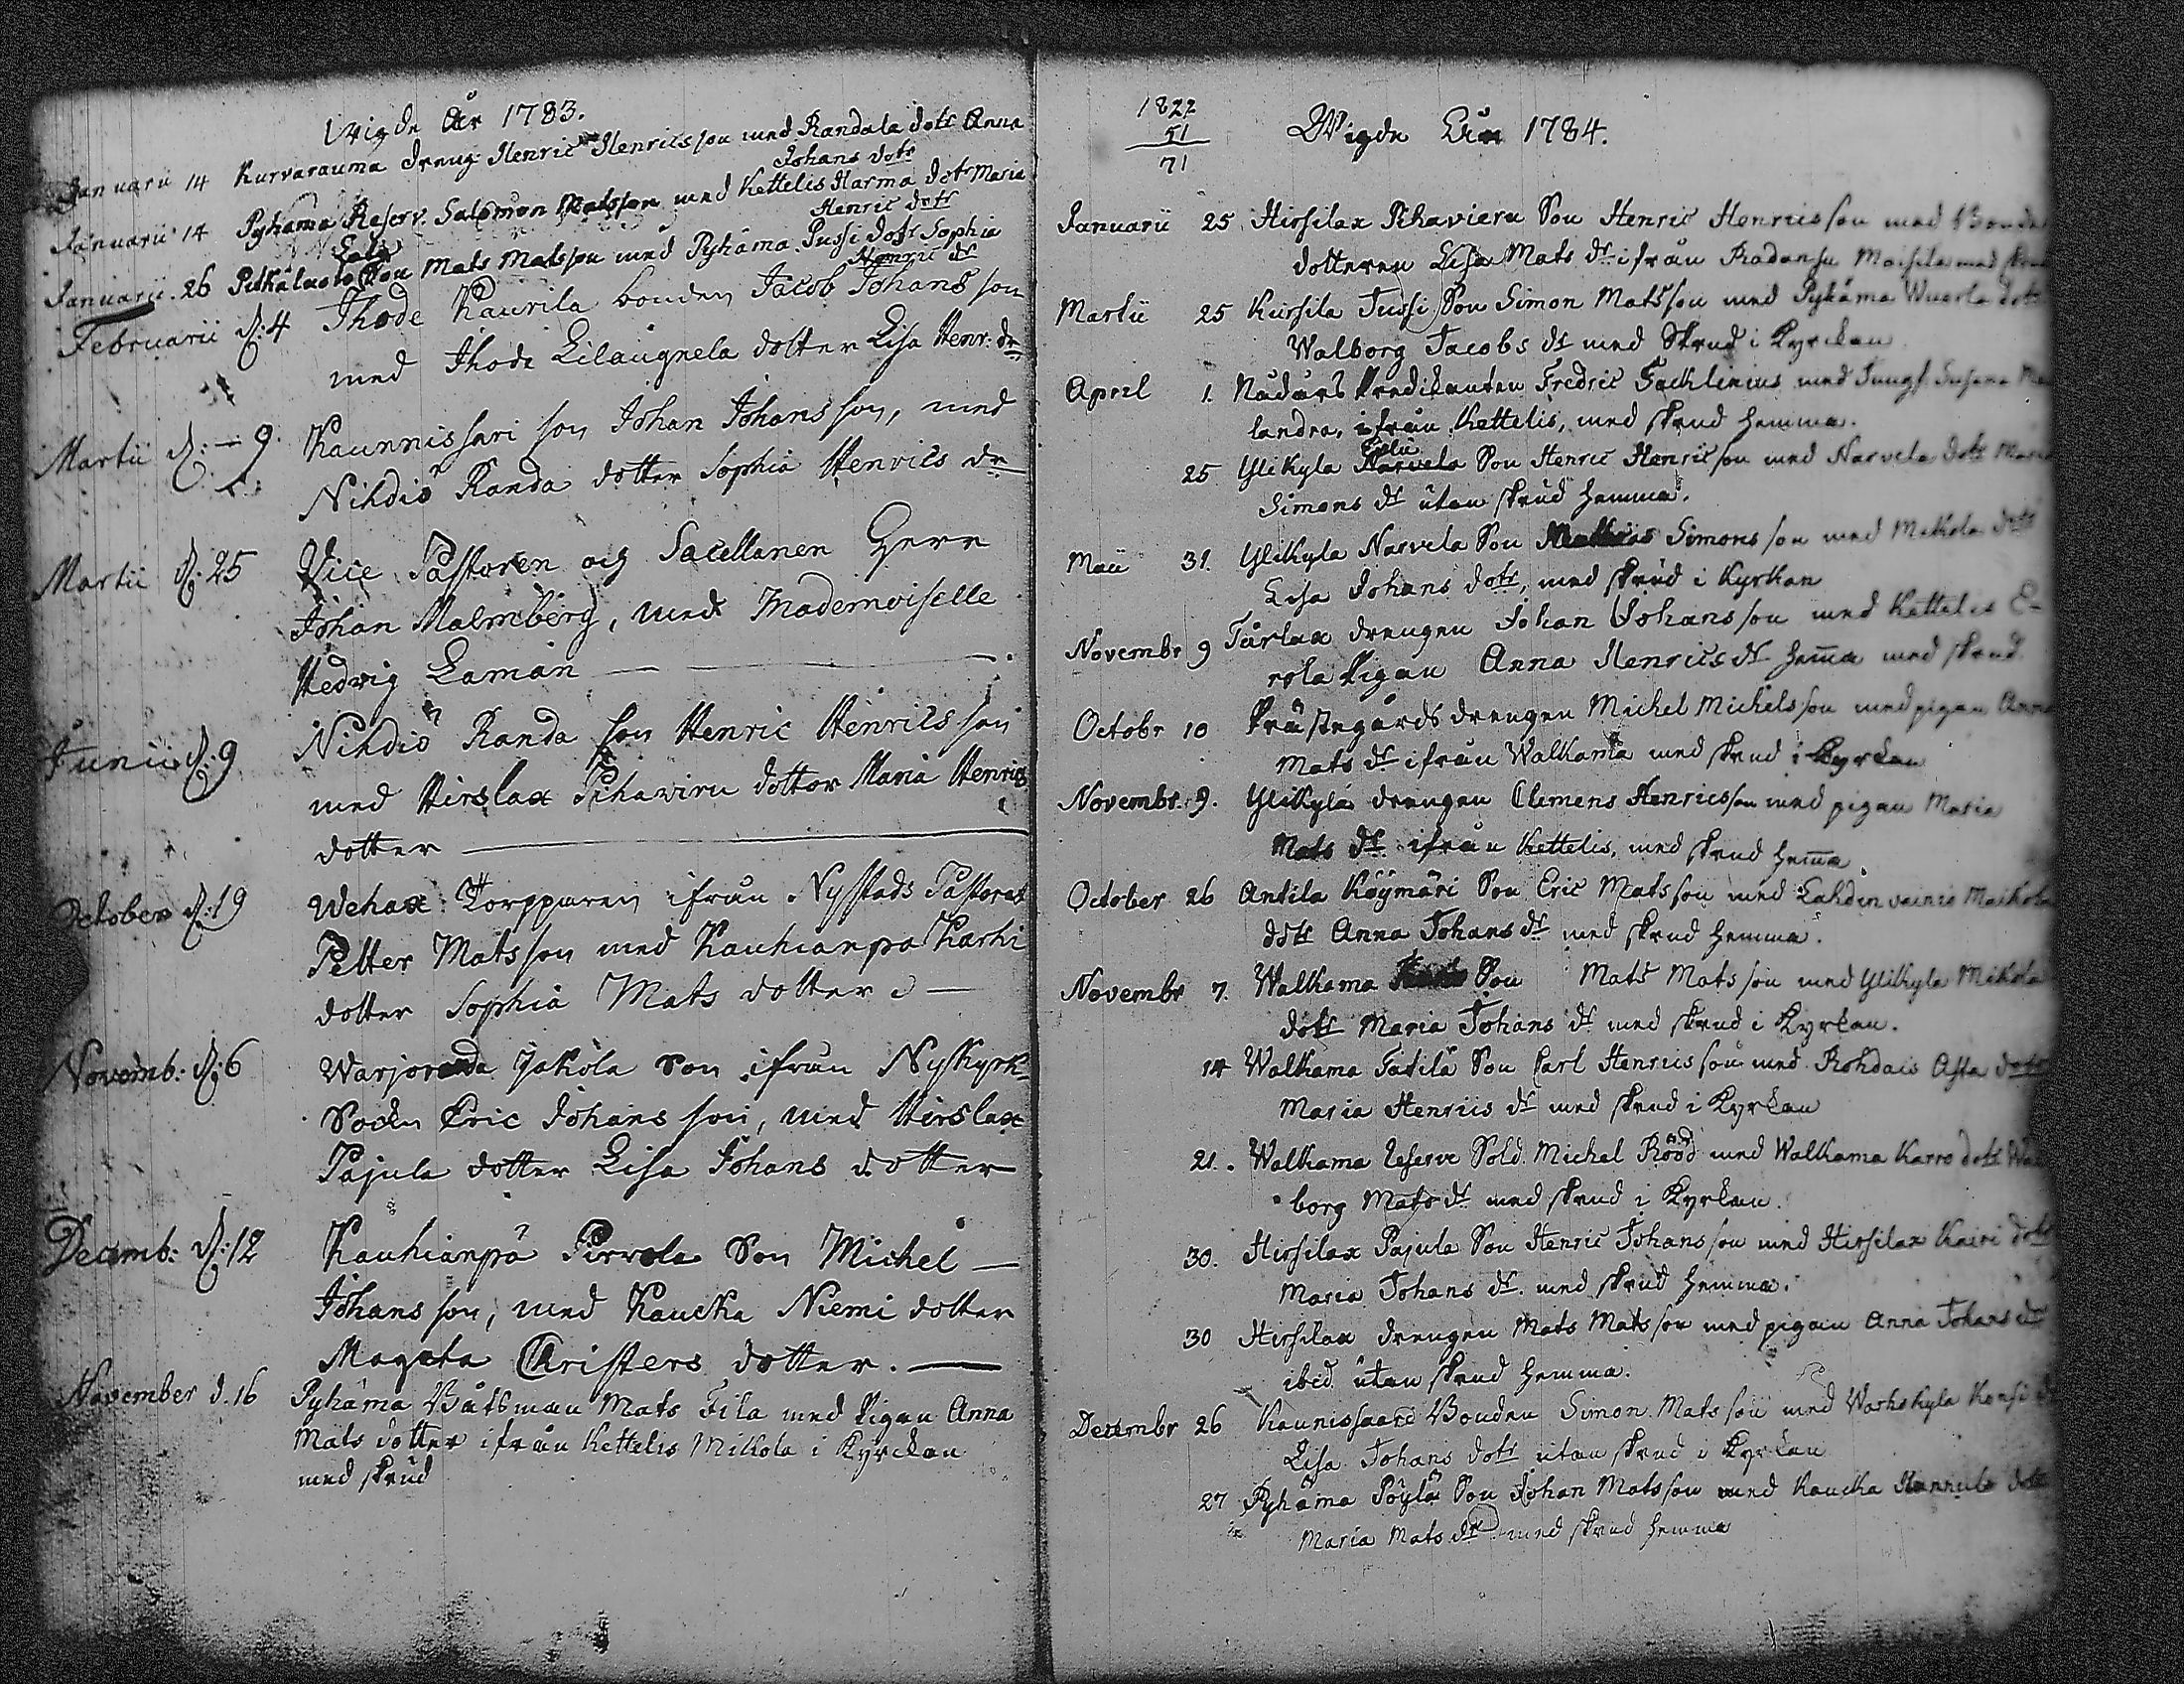 Wigde År 1783.
Januarii 14 Kurvarauma dreng Henric Henricsson med Randala dotr Anna
Johans dotr
Januarii 14 Pyhama Reserv. Salomon Matsson med Kettelis Harma dotr Maria
Henric dotr
Januarii. 26 Pitkäluoto Son Mats Matsson med Pyhäma Jussi dotr Sophia
Henric dr
Februarii d. 4 Ihode Kaurila bonden Jacob Johansson
med Ihode Lilaugnela dotter Lisa Henr: dr
Martii d: - 9. Kaunnissari son Johan Johansson, med
Nihdiö Randa dotter Sophia Henrics dr
Martii d: 25 Vice Pastoren og Sacellanen Herr
Johan Malmberg, med Mademoiselle
Hedvig Laman
Junii d: 9 Nihdiö Randa son Henric Henrics son
med Hirslax Pihaviru dotter Maria Henrics
dotter
October d: 19 Wehax Torpparen ifrån Nystads Pastorat
Petter Matsson med Kauhianpä Karhi
dotter Sophia Mats dotter
Novemb: d: 6 Warjoranda Jakola Son ifrån Nykyrk-
Sockn Eric Johansson, med Hirslax
Pajula dotter Lisa Johans dotter
Decemb: d: 12 Kauhianpä Pirrola Son Michel
Johansson, med Kaucka Niemi dotter
Mageta Christers dotter.
November d. 16 Pyhäma Båtsman Mats Fila med Pigan Anna
Mats dotter ifrån Kettelis Mikola i Kyrckan
med skrud
1822
51
71
Wigde År 1784.
Januarii 25 Hirsilax Pihavieru Son Henric Henricsson med Bonde
dotteren Lisa Mats dr ifrån Radansu Maisila med skrud
Martii 25 Kursila Jussi Son Simon Matsson med Pyhäma Wuorla dotr
Walborg Jacobs dr med Skrud i Kyrckan
April 1. Nådårs Predikanten Fredric Facklinius med Jungf. Susana
landra, ifrån Kettelis, med skrud hemma.
25 Ylikyla Narvela Son Henric Henricsson med Narvela dotr Maria
Simons dr utan skrud hemma.
Maii 31. Ylikyla Narvela Son Simonsson med Mikola dotr
Lisa Johans dotr, med skrud i Kyrkan
Novembr 9 Tarlax drengen Johan Johansson med Kettelis E-
rola Pigan Anna Henrics dr hemma med skrud
Octobr 10 Prästegårds drengen Michel Michelsson med pigan Anna
Mats dr ifrån Walkama med skrud i Kyrckan
Novembr. 9. Ylikyla drengen Clemens Henricsson med pigan Maria
Mats dr ifrån Kettelis, med skrud hemma
October 26 Antila Köymäri Son Eric Matsson med Lahdinvainio Maikola
dotr Anna Johans dr med skrud hemma.
Novembr 7. Walkama Son Mats Matsson med Ylikyla Mikola
dotr Maria Johans dr med skrud i Kyrckan.
14 Walkama Tatila Son Carl Henricsson med Rohdais Asta dotr
Maria Henrics dr med skrud i Kyrckan
21. Walkama Reserve Sold. Michel Rööd med Walkama Karro dotr Wal
borg Mats dr med skrud i Kyrckan.
30. Hirsilax Pajula Son Henric Johansson med Hirsilax Kairi dotr
Maria Johans dr. med skrud hemma.
30 Hirsilax drengen Mats Matsson med pigan Anna Johans dr
ibid. utan skrud hemma.
Decembr 26 Kaunissaari Bonden Simon Matsson med Warhokyla Konsi
Lisa Johans dotr utan skrud i Kyrckan
27 Pyhäma Pöylä Son Johan Matsson med Kaucka Hannula dotr
Maria Mats dr med skrud hemma